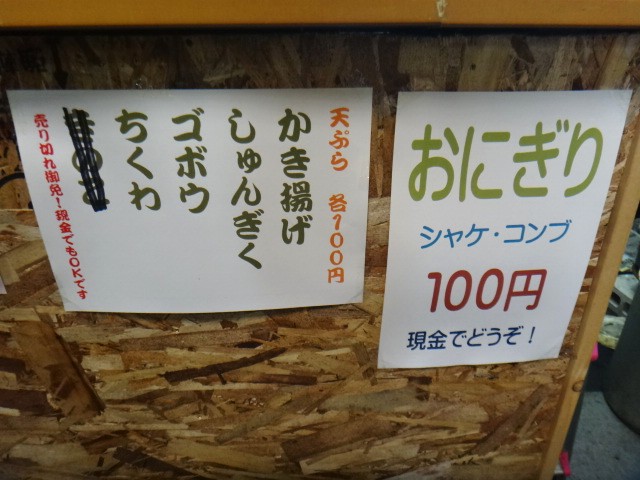 天ぷら 各100円
かき揚げ
しゅんぎく
ゴボウ
ちくわ
売り切れ御免!現金でもOKです
おにぎり
シャケ・コンブ
100円
現金でどうぞ!